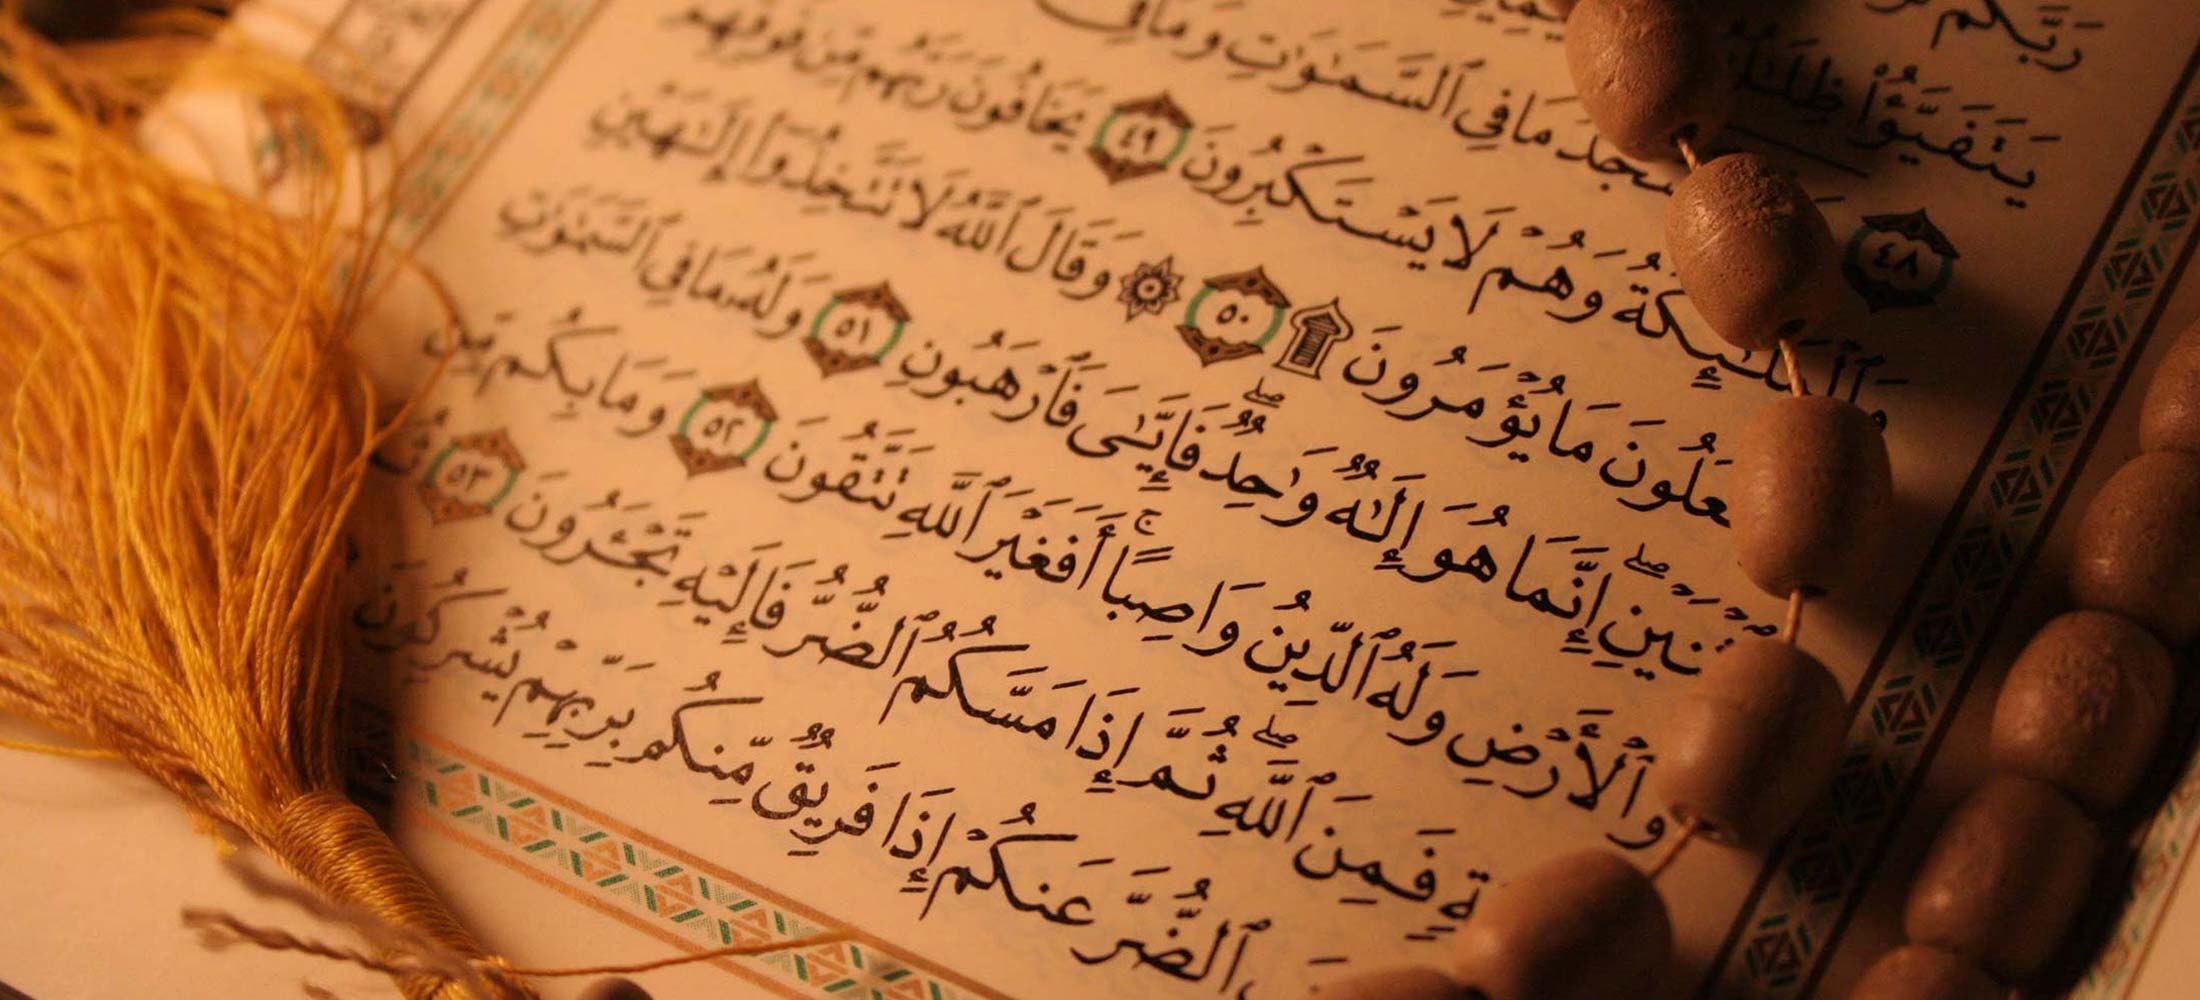 رَبَّكُمْ
يَتَفَيَّؤُا۟ ظِلَـٰلُهُۥ
٤٨ مَا فِى ٱلسَّمَـٰوَٰتِ وَمَا فِى
وَٱلْمَلَـٰٓئِكَةُ وَهُمْ لَا يَسْتَكْبِرُونَ ٤٩ يَخَافُونَ رَبَّهُم مِّن فَوْقِهِمْ
مَا يُؤْمَرُونَ ۩ ٥٠ ۞ وَقَالَ ٱللَّهُ لَا تَتَّخِذُوٓا۟ إِلَـٰهَيْنِ
إِنَّمَا هُوَ إِلَـٰهٌ وَٰحِدٌ ۖ فَإِيَّـٰىَ فَٱرْهَبُونِ ٥١ وَلَهُۥ مَا فِى ٱلسَّمَـٰوَٰتِ
وَٱلْأَرْضِ وَلَهُ ٱلدِّينُ وَاصِبًا ۚ أَفَغَيْرَ ٱللَّهِ تَتَّقُونَ ٥٢ وَمَا بِكُم مِّن
فَمِنَ ٱللَّهِ ۖ ثُمَّ إِذَا مَسَّكُمُ ٱلضُّرُّ فَإِلَيْهِ تَجْـَٔرُونَ ٥٣ ثُمَّ
ٱلضُّرَّ عَنكُمْ إِذَا فَرِيقٌ مِّنكُم بِرَبِّهِمْ يُشْرِكُونَ